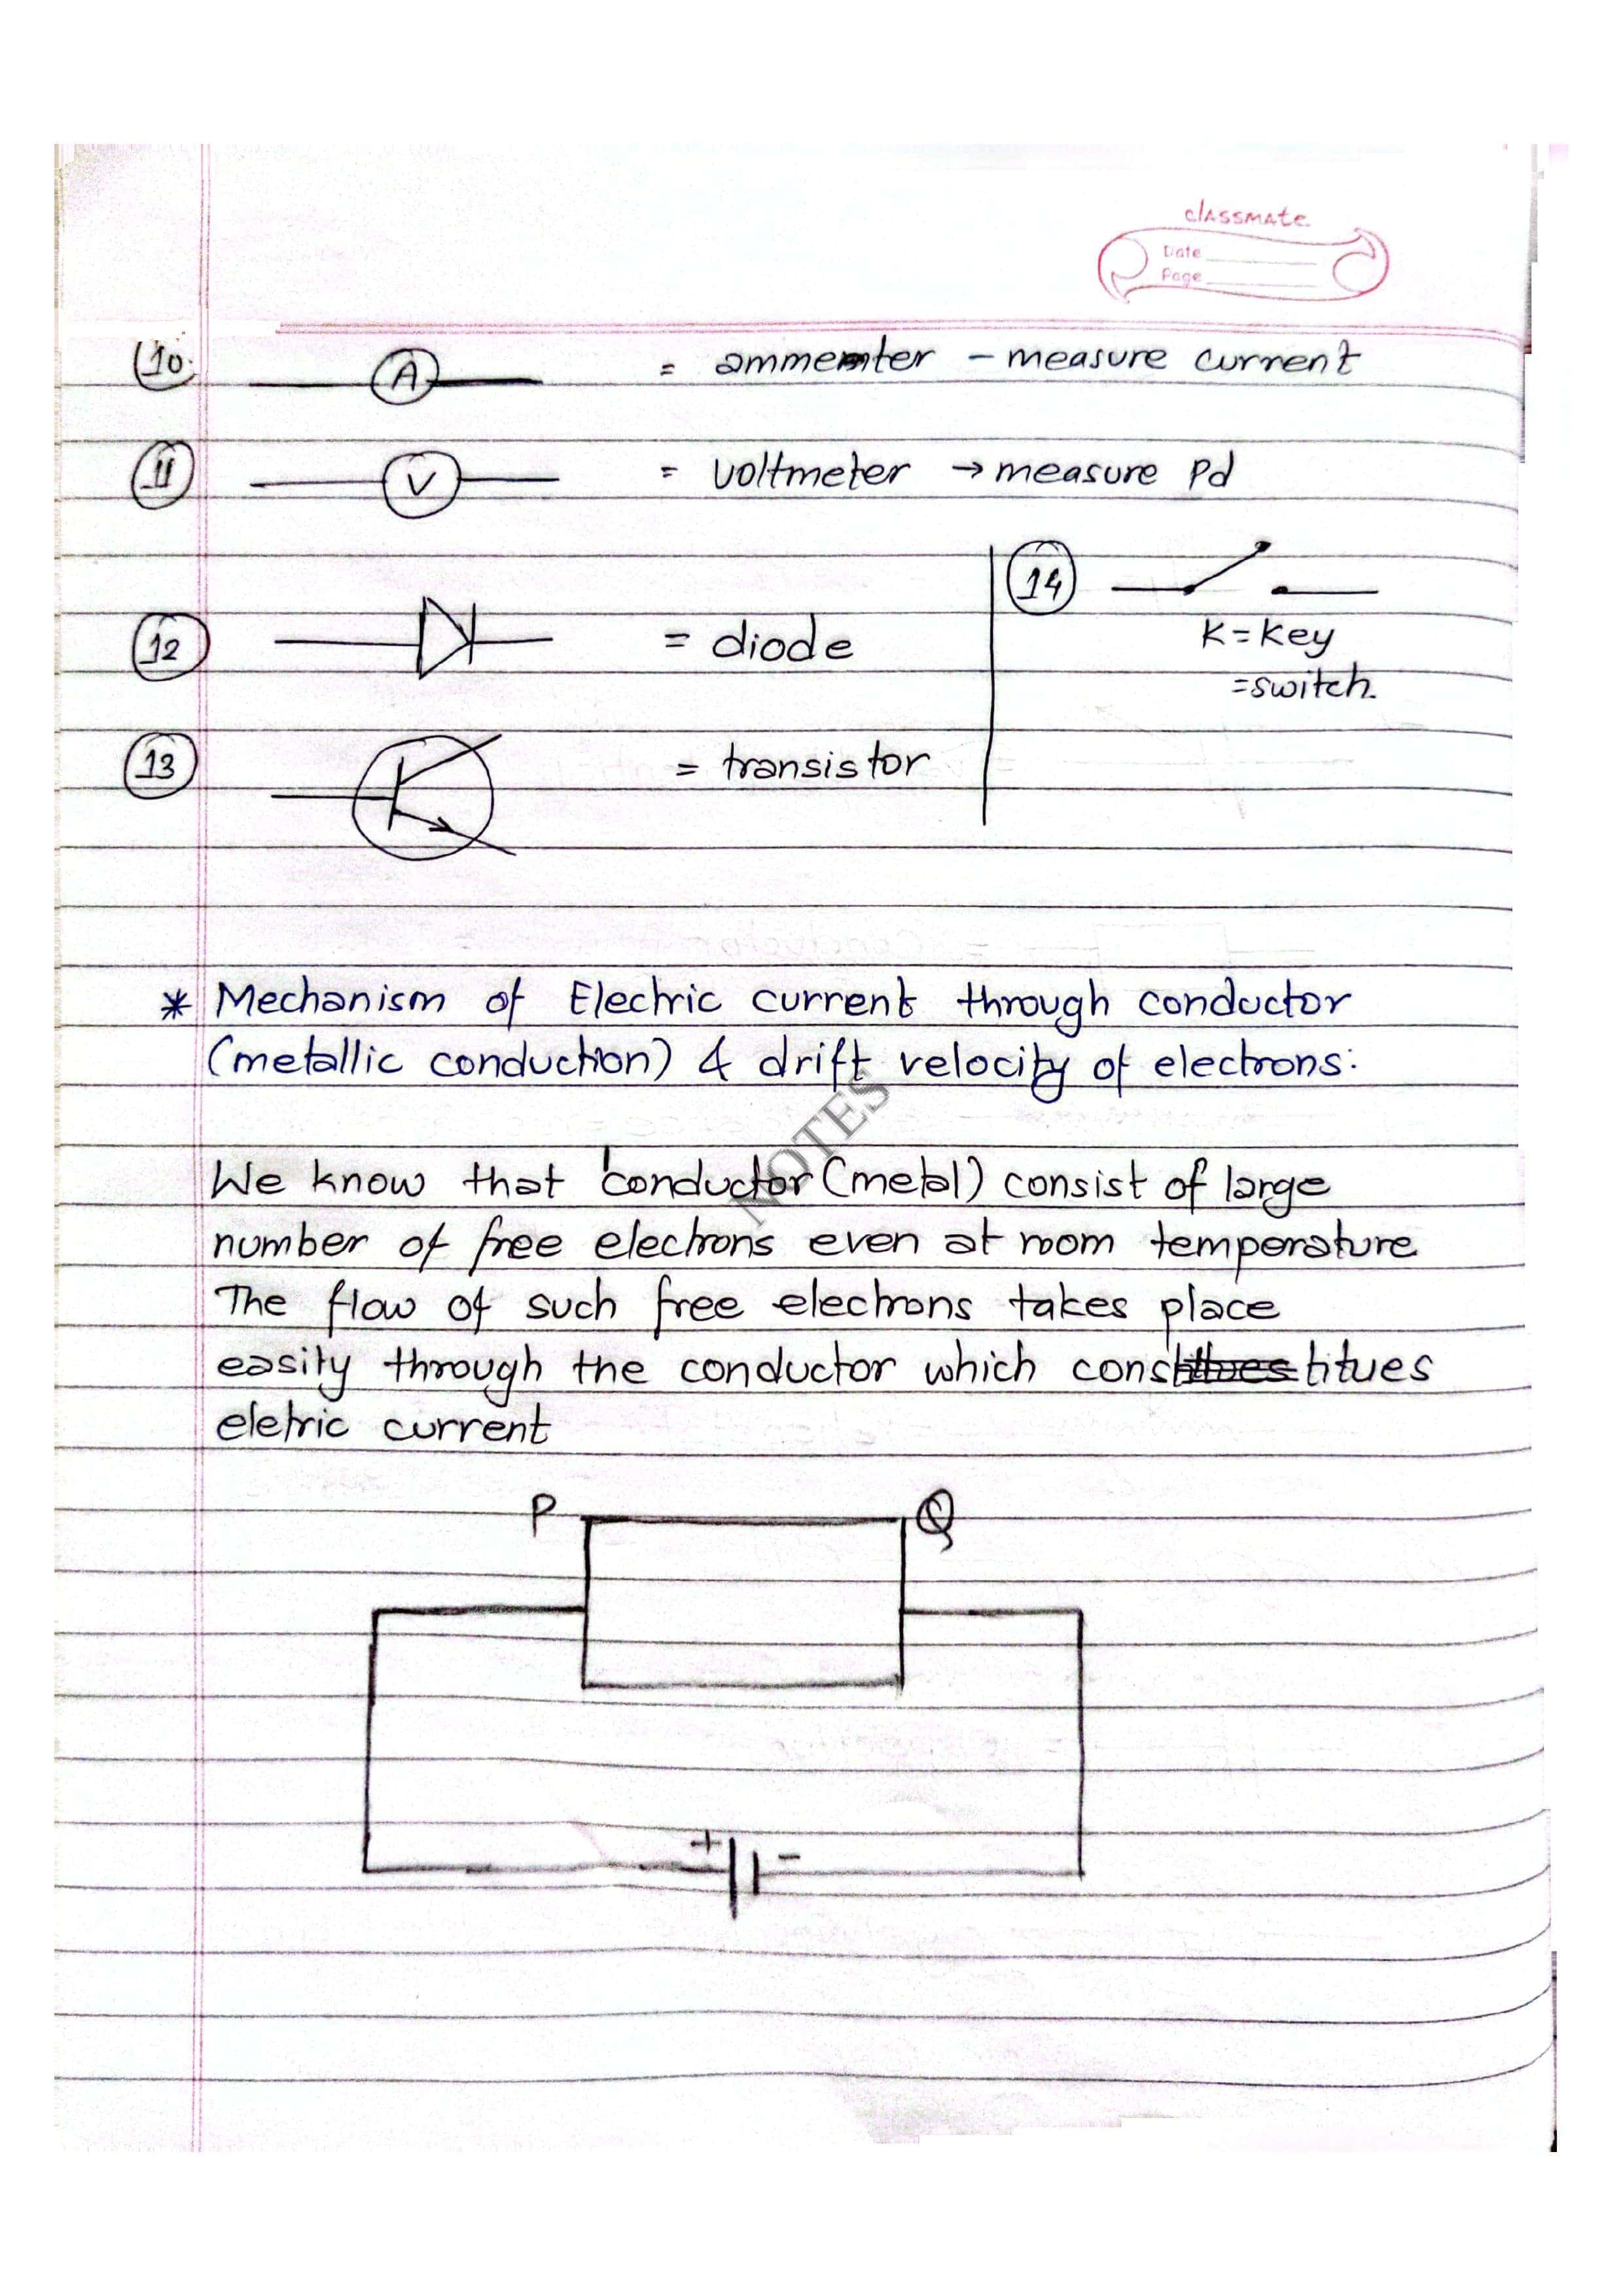 classmate
Date
Page
10.
A
= ammeter - measure current
11
V
= voltmeter → measure Pd
12
= diode
14
K = Key
= switch.
13
= transistor
* Mechanism of Electric current through conductor
(metallic conduction) & drift velocity of electrons:
NOTES
We know that conductor (metal) consist of large
number of free electrons even at room temperature
The flow of such free electrons takes place
easily through the conductor which constitues
eletric current
P
Q
+
-